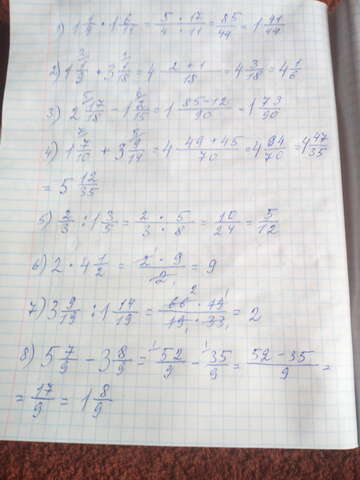 1) 1 1/4 * 1 6/11 = 5 · 17 / 4 · 11 = 85/44 = 1 41/44
2) 1 1/9 + 3 1/18 = 4 2 + 1 / 18 = 4 3/18 = 4 1/6
3) 2 17/18 - 1 2/15 = 1 85 - 12 / 90 = 1 73/90
4) 1 7/10 + 3 9/14 = 4 49 + 45 / 70 = 4 94/70 = 4 47/35
= 5 12/35
5) 2/3 : 1 3/5 = 2 · 5 / 3 · 8 = 10/24 = 5/12
6) 2 · 4 1/2 = 2 · 9 / 2 = 9
7) 3 9/19 : 1 14/19 = 66 · 19 / 19 · 33 = 2
8) 5 7/9 - 3 8/9 = 52/9 - 35/9 = 52 - 35 / 9 =
= 17/9 = 1 8/9